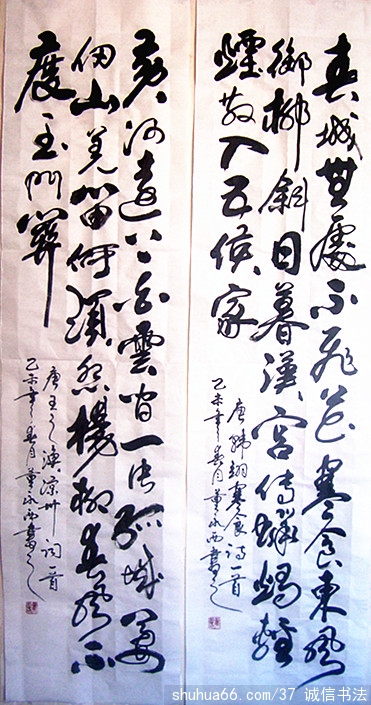 春城無處不飛花寒食東風
御柳斜日暮漢宮傳蠟燭輕
煙散入五侯家
唐韓翃寒食詩一首
乙未年春月董永西書之
黃河遠上白雲間一片孤城萬
仞山羌笛何須怨楊柳春風不
度玉門關
唐王之渙涼州詞一首
乙未年春月董永西書之
shuhua66.com/37 诚信书法